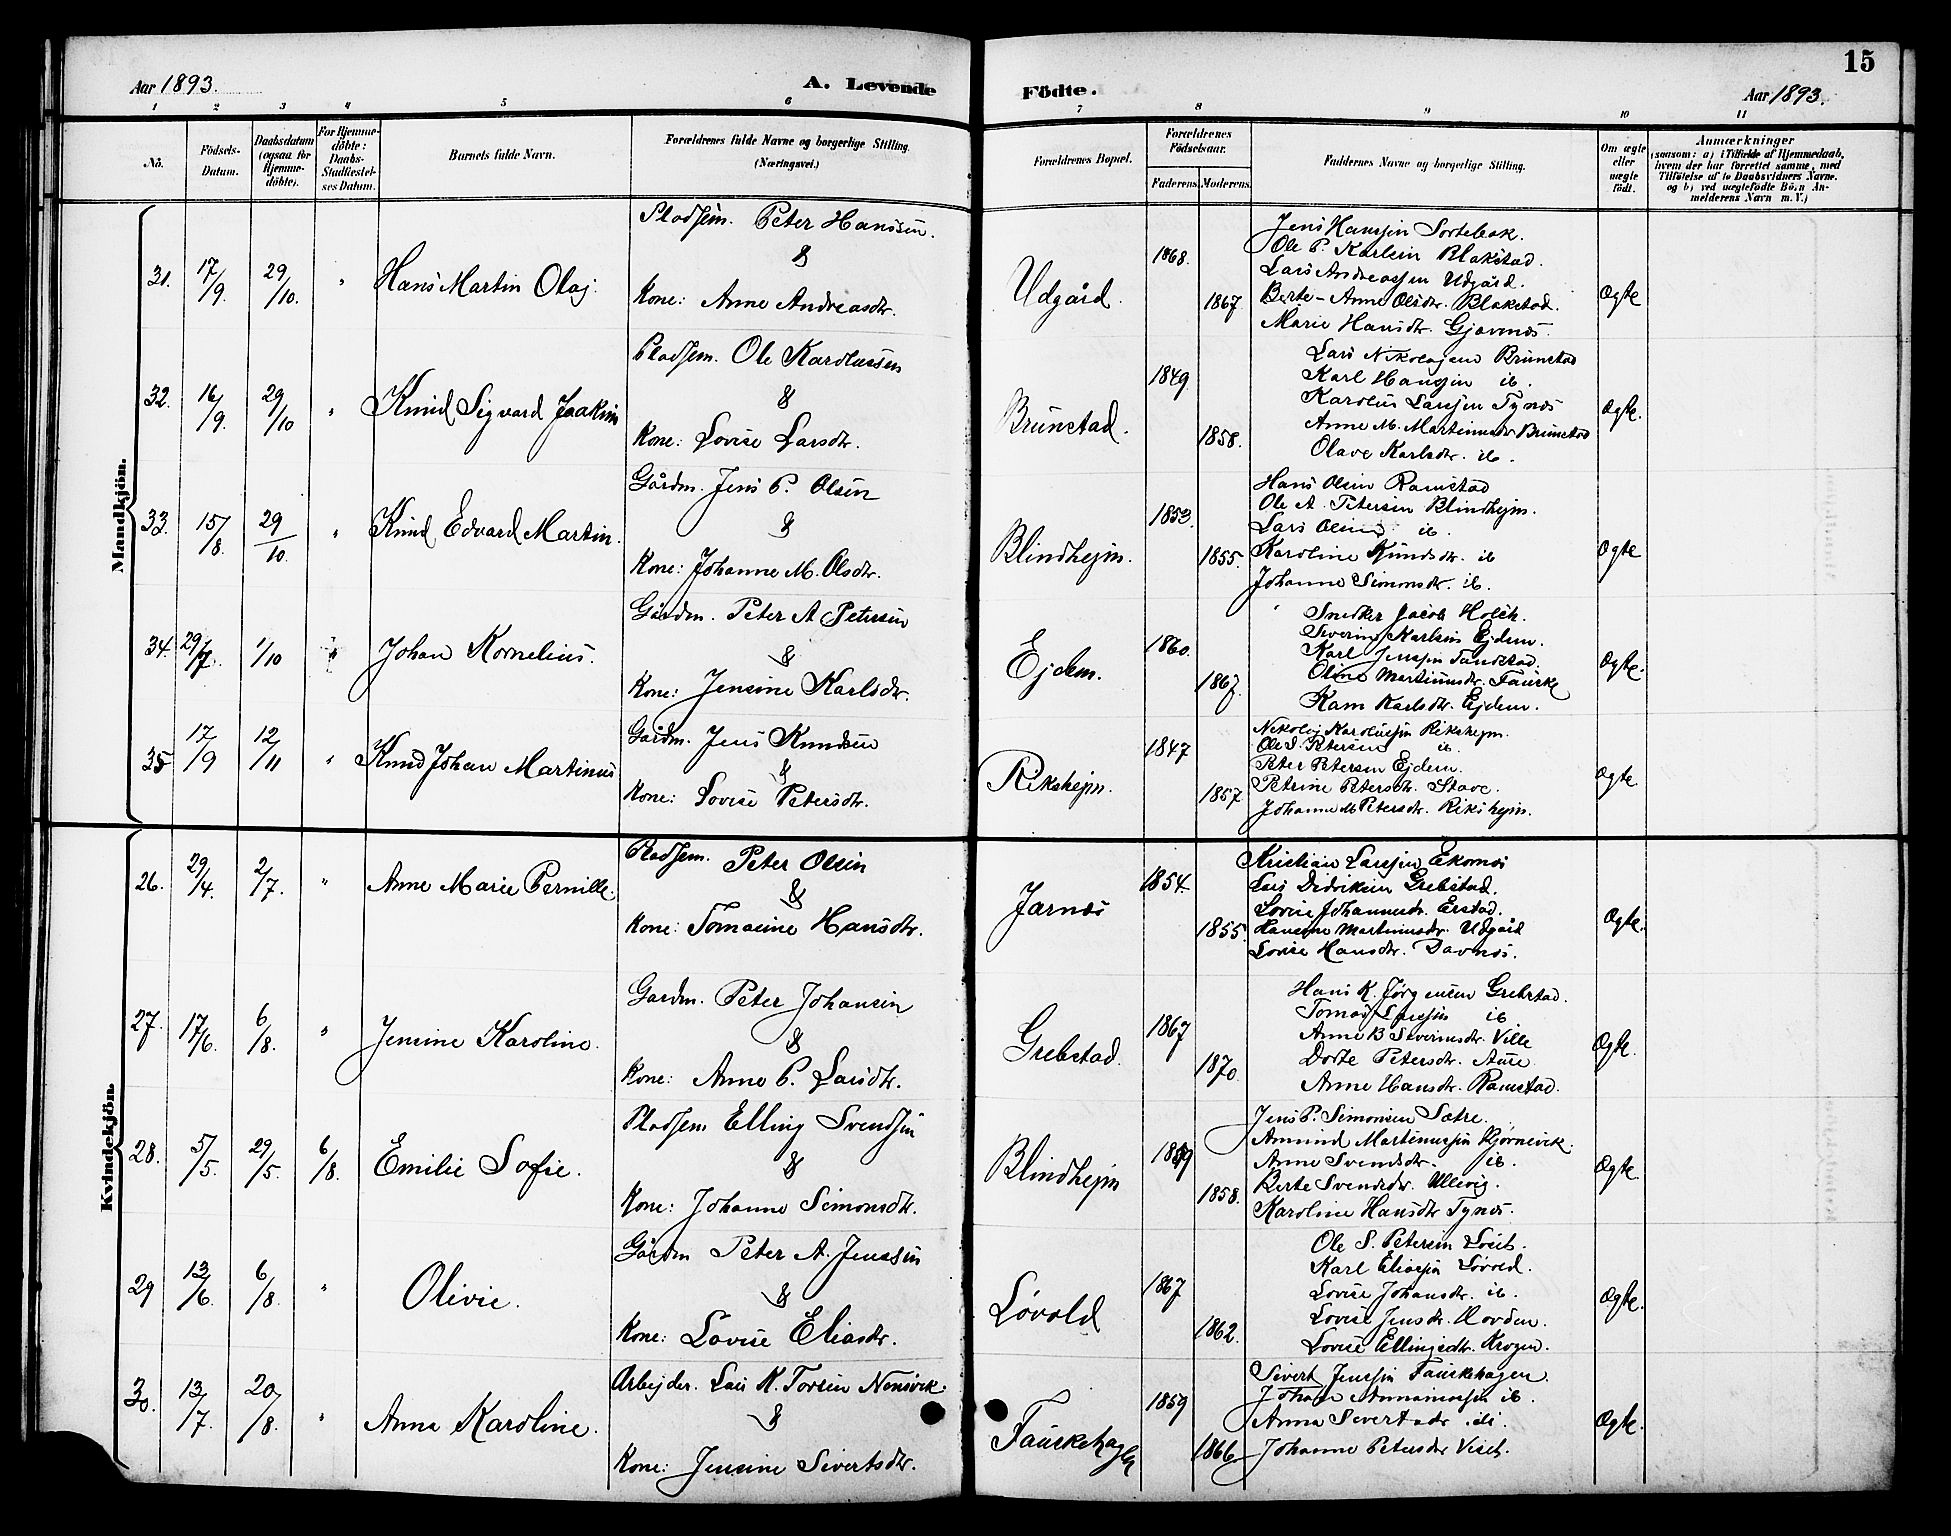 15
Aar 1893. A. Levende Födte. Aar 1893.
1 2 3 4 5 6 7 8 9 10 11
No.
Födsels-Datum.
Daabsdatum (ogsaa for Hjemme-döbte).
For Hjemme-döbte: Daabs-Stadfæstel-ses Datum.
Barnets fulde Navn.
Forældrenes fulde Navne og borgerlige Stilling (Næringsvei.)
Forældrenes Bopæl.
Forældrenes Födselsaar.
Faderens. Moderens.
Faddernes Navne og borgerlige Stilling.
Om ægte eller uægte födt.
Anmærkninger
(saasom: a) i Tilfælde af Hjemmedaab, hvem der har forrettet samme, med Tilföielse af to Daabsvidners Navne. og b) ved uægtefödte Börn An-melderens Navn m. V.)
Mandkjön.
31. 17/9. 29/10. " Hans Martin Olaj.
Pladsem. Peter Hanssen.
&
Kone: Anne Andreasdtr.
Udgård. 1868. 1867.
Jens Hanssen Sortebak.
Ole P. Karlsen Blakstad.
Lars Andreassen Udgård.
Berte-Anne Olsdtr. Blakstad.
Marie Hansdtr. Gjævenæs.
Ægte
32. 16/9. 29/10 " Knud Sigvard Joakim
Pladsem. Ole Karolussen
&
Kone: Lovise Larsdtr.
Brunstad. 1849. 1858.
Lars Nikolajsen Brunstad
Karl Hanssen ib.
Karolus Larssen Tynes
Anne M. Martinusdtr Brunstad
Olave Karlsdtr. ib.
Ægte.
33. 15/8. 29/10 " Knud Edvard Martin.
Gårdm. Jens P. Olsen
&
Kone: Johanne M. Olsdtr.
Blindhejm. 1853. 1855.
Hans Olsen Ramstad
Ole A. Petersen Blindhejm.
Lars Olsen ib.
Karoline Knudsdtr. ib
Johanne Simonsdtr. ib.
Ægte
34. 29/7. 1/10 " Johan Kornelius.
Gårdm. Peter A Petersen
&
Kone: Jensine Karlsdtr.
Ejdem. 1860. 1867.
Snedker Jacob Holch.
Severin Karlsen Ejdem.
Karl Jenssen Tandstad.
Oline Martinusdtr. Faurke
Karn Karlsdtr. Ejdem.
Ægte.
35 17/9 12/11 " Knud Johan Martinus
Gårdm. Jens Knudsen
&
Kone: Lovise Petersdtr.
Rikshejm. 1847 1857.
Nikolaj Karolussen Rikshejm.
Ole S. Petersen ib
Peter Petersen Ejdem.
Petrine Petersdtr. Stave.
Johanne M Petersdtr. Rikshejm.
Ægte
Kvindekjön.
26. 29/4. 2/7. " Anne Marie Pernille.
Pladsem. Peter Olsen
&
Kone: Tomasine Hansdtr.
Jarnes 1854. 1855.
Kristian Larssen Ekornes
Lars Didriksen Grebstad.
Lovise Johannesdtr. Erstad.
Hansine Martinusdtr. Udgård
Lovise Hansdtr. Davnes.
Ægte.
27. 17/6. 6/8. " Jensine Karoline.
Gardm. Peter Johansen
&
Kone: Anne P. Larsdtr.
Grebstad. 1867 1870.
Hans K. Jørgensen Grebstad.
Tomas Larssen ib
Anne B Severinsdtr. Ville
Dorte Petersdtr. Aure
Anne Hansdtr. Ramstad.
Ægte.
28. 5/5. 29/5. 6/8. Emilie Sofie.
Pladsem Elling Svendsen
&
Kone: Johanne Simonsdtr.
Blindhejm 1858.
Jens P. Simonsen Sætre.
Amund Martinussen Bjørnevik.
Anne Svendsdtr. ib.
Berte Svendsdtr. Ullevig.
Karoline Hansdtr Tynes.
Ægte.
29 13/6. 6/8. " Olivie.
Gårdm Peter A. Jenssen
&
Kone: Lovise Eliasdtr.
Løvold 1867 1862.
Ole S. Petersen Løset.
Karl Eliassen Løvold.
Lovise Johansdtr. ib.
Lovise Jensdtr. Hovden.
Lovise Ellingsdtr. Krogen.
Ægte.
30. 13/7. 20/8. " Anna Karoline.
Arbejder. Lars K. Torsen Nensvik.
&
Kone: Jensine Sivertsdtr.
Faurskehagen 1859 1866
Sivert Jenssen Faurskehagen.
Johan ib.
Anna Sivertsdtr ib.
Johanne Petersdtr Viset.
Ægte.